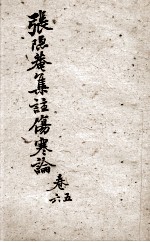 張隱菴集註傷寒論
卷五六